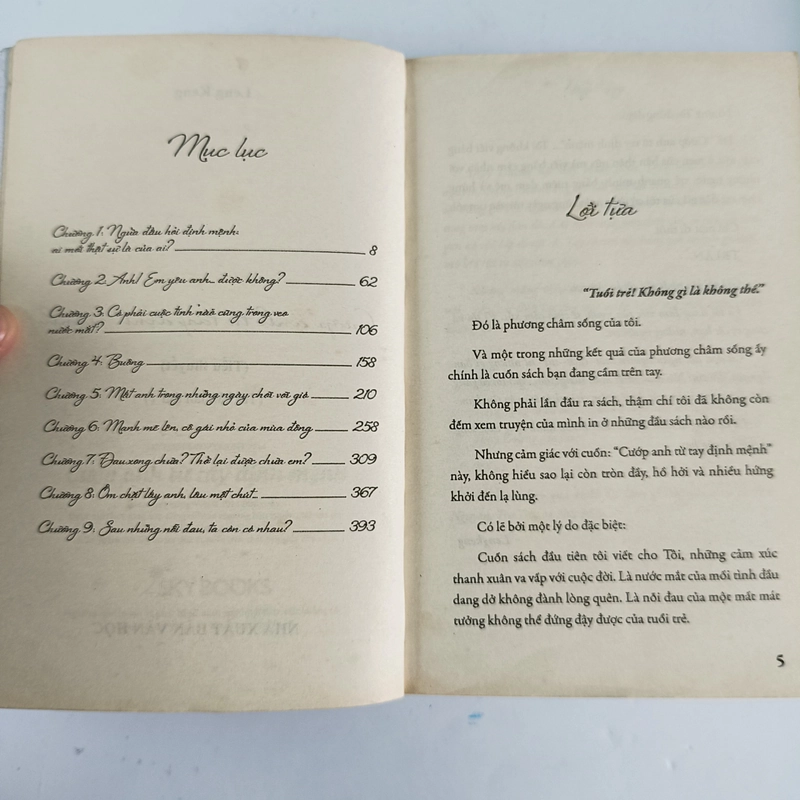 Mục lục
Chương 1: Ngửa đầu hỏi định mệnh:
ai mới thật sự là của ai? 8
Chương 2: Anh! Em yêu anh... được không? 62
Chương 3: Có phải cuộc tình nào cũng trong veo
nước mắt? 106
Chương 4: Buông 158
Chương 5: Mất anh trong những ngày chới với gió 210
Chương 6: Mạnh mẽ lên, cô gái nhỏ của mùa đông 258
Chương 7: Đau xong chưa? Thở lại được chưa em? 309
Chương 8: Ôm chặt lấy anh, lâu một chút... 367
Chương 9: Sau những nỗi đau, ta còn có nhau? 393
SKYBOOKS
NHÀ XUẤT BẢN VĂN HỌC
Lời tựa
“Tuổi trẻ! Không gì là không thể.”
Đó là phương châm sống của tôi.
Và một trong những kết quả của phương châm sống ấy
chính là cuốn sách bạn đang cầm trên tay.
Không phải lần đầu ra sách, thậm chí tôi đã không còn
đếm xem truyện của mình in ở những đầu sách nào rồi.
Nhưng cảm giác với cuốn: “Cướp anh từ tay định mệnh”
này, không hiểu sao lại còn tròn đầy, hồ hởi và nhiều hứng
khởi đến lạ lùng.
Có lẽ bởi một lý do đặc biệt:
Cuốn sách đầu tiên tôi viết cho Tôi, những cảm xúc
thanh xuân va vấp với cuộc đời. Là nước mắt của mối tình đầu
dang dở không đành lòng quên. Là nỗi đau của một mất mát
tưởng không thể đứng dậy được của tuổi trẻ.
5